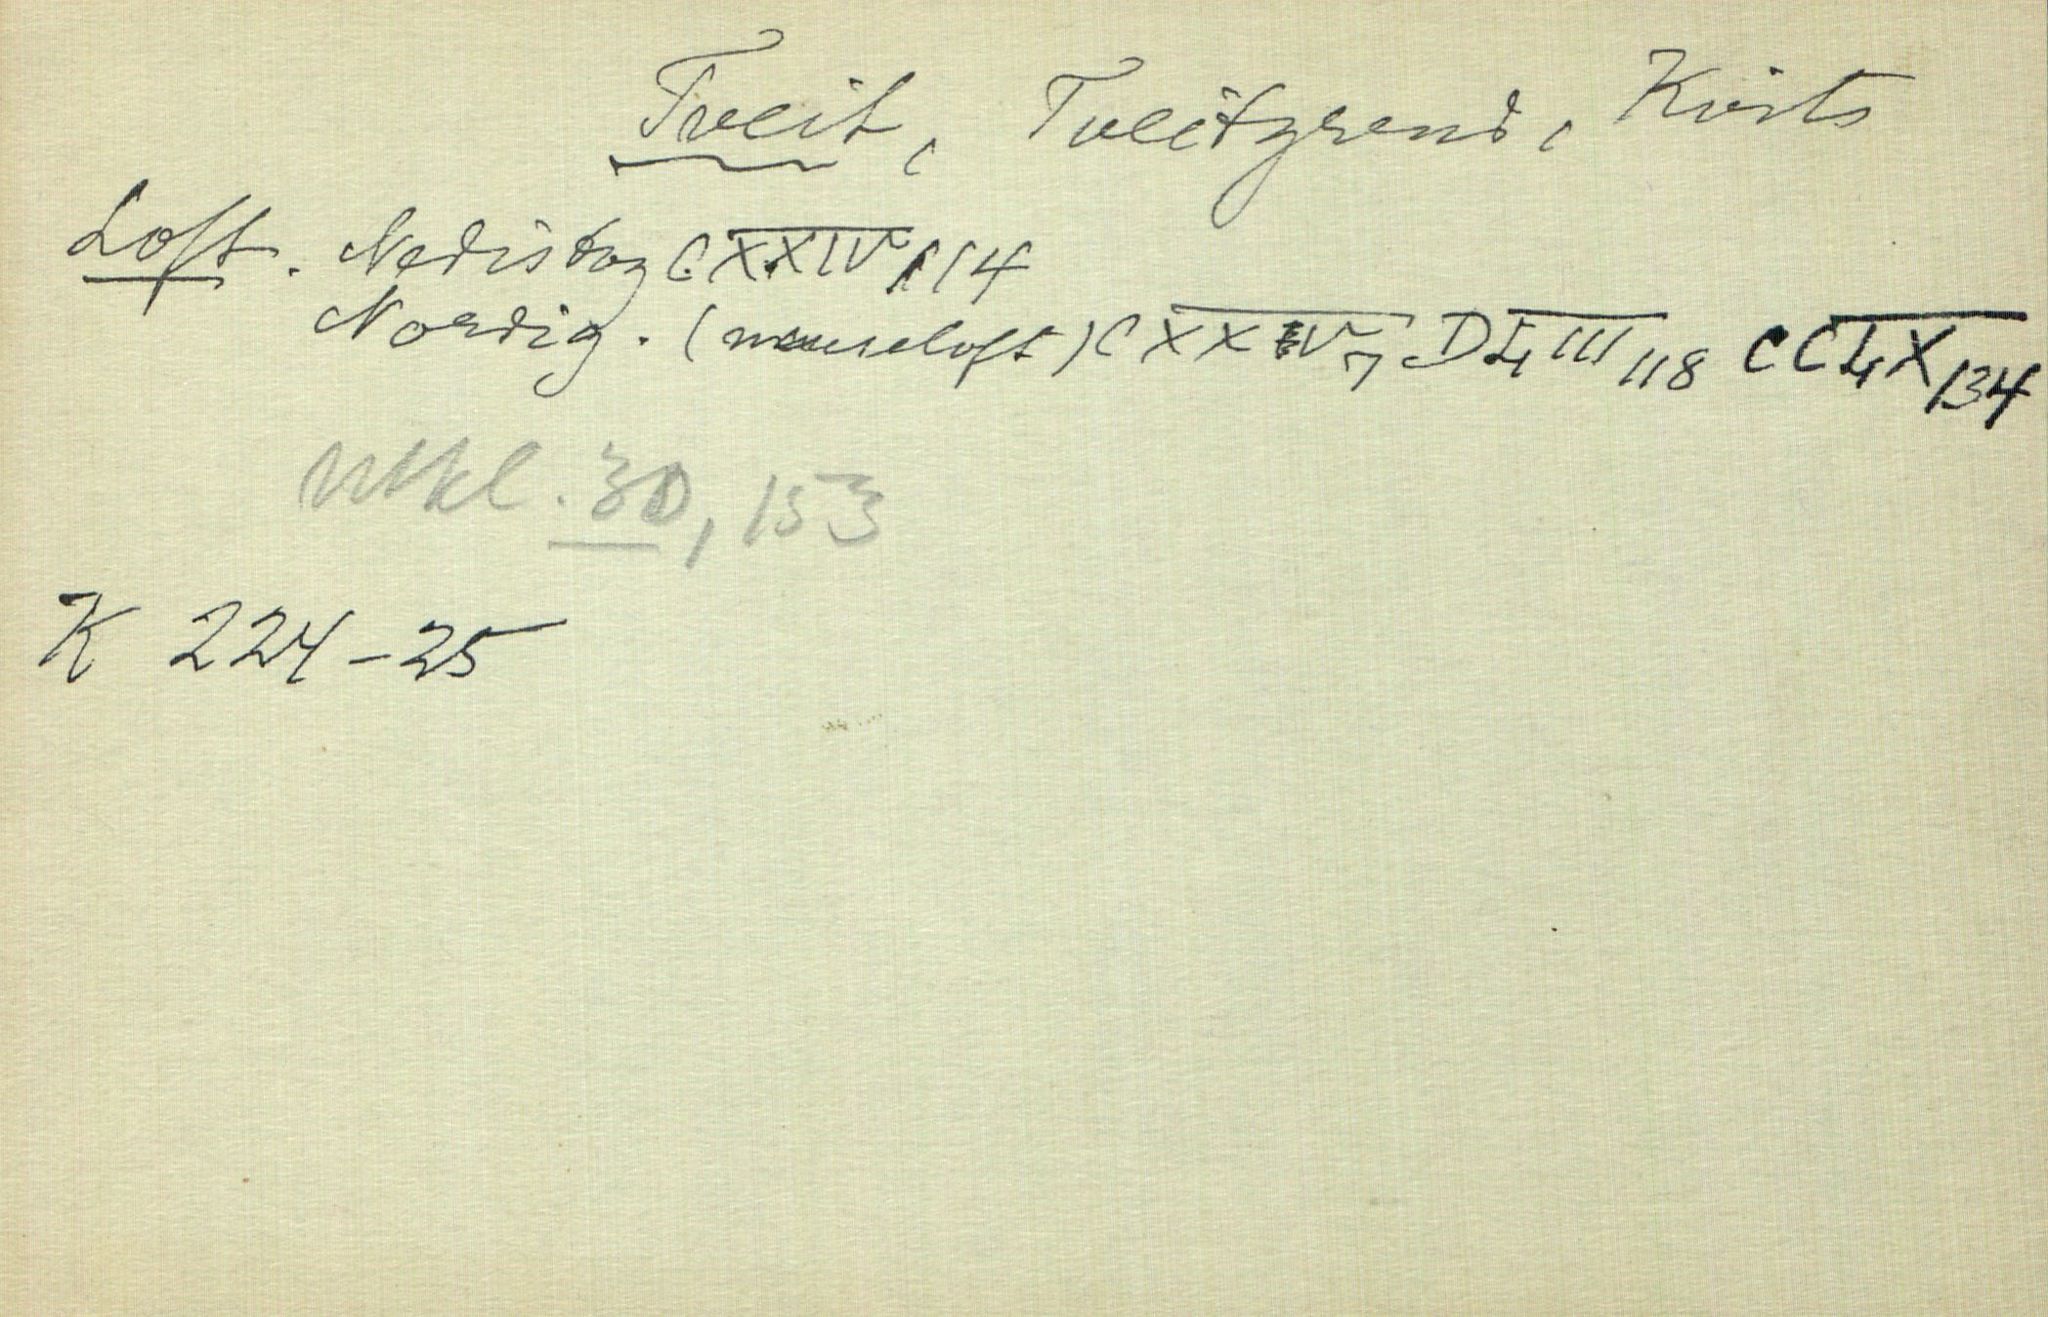 Tveit, Tveitgrend, Kvits
Loft. Nedistog C XXIV 114
Nordig. (museloft) C XXIV 7 D LIII 118 CC LX 134
30, 153
K 224-25